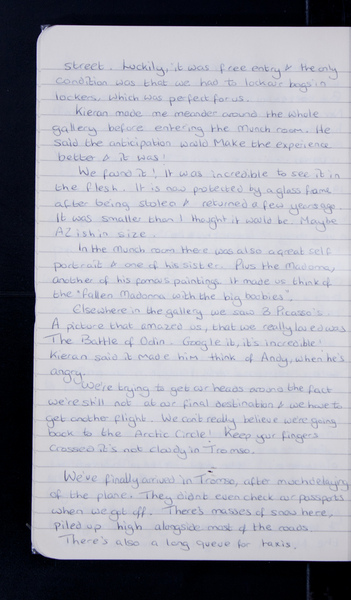 street. Luckily, it was free entry & the only
condition was that we had to lock our bags in
lockers, which was perfect for us.
Kieran made me meander around the whole
gallery before entering the Munch room. He
said the anticipation would make the experience
better & it was!
We found it! It was incredible to see it in
the flesh. It is now protected by a glass frame
after being stolen & returned a few years ago.
It was smaller than I thought it would be. Maybe
A2ish in size.
In the Munch room there was also a great self
portrait & one of his sister. Plus the Madonna,
another of his famous paintings. It made us think of
the "Fallen Madonna with the big boobies".
Elsewhere in the gallery we saw 3 Picasso's.
A picture that amazed us, that we really loved was
The Battle of Odin. Google it, it's incredible!
Kieran said it made him think of Andy, when he's
angry.
We're trying to get our heads around the fact
we're still not at our final destination & we have to
get another flight. We can't really believe we're going
back to the Arctic Circle! Keep your fingers
crossed it's not cloudy in Tromso.
We've finally arrived in Tromso, after much delaying
of the plane. They didn't even check our passports
when we got off. There's masses of snow here,
piled up high alongside most of the roads.
There's also a long queue for taxis.